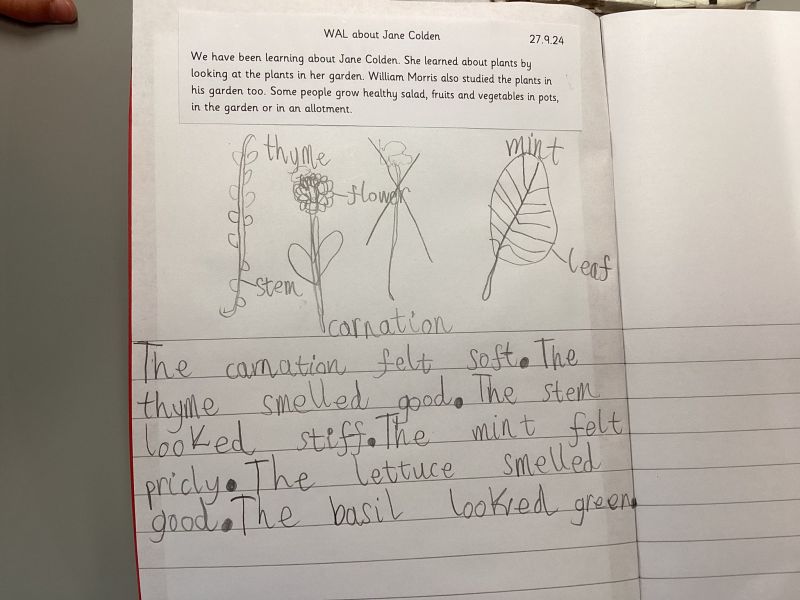 WAL about Jane Colden
27.9.24
We have been learning about Jane Colden. She learned about plants by
looking at the plants in her garden. William Morris also studied the plants in
his garden too. Some people grow healthy salad, fruits and vegetables in pots,
in the garden or in an allotment.
thyme
mint
flower
leaf
stem
carnation
The carnation felt soft. The
thyme smelled good. The stem
looked stiff. The mint felt
pricly. The lettuce smelled
good. The basil lookred green.